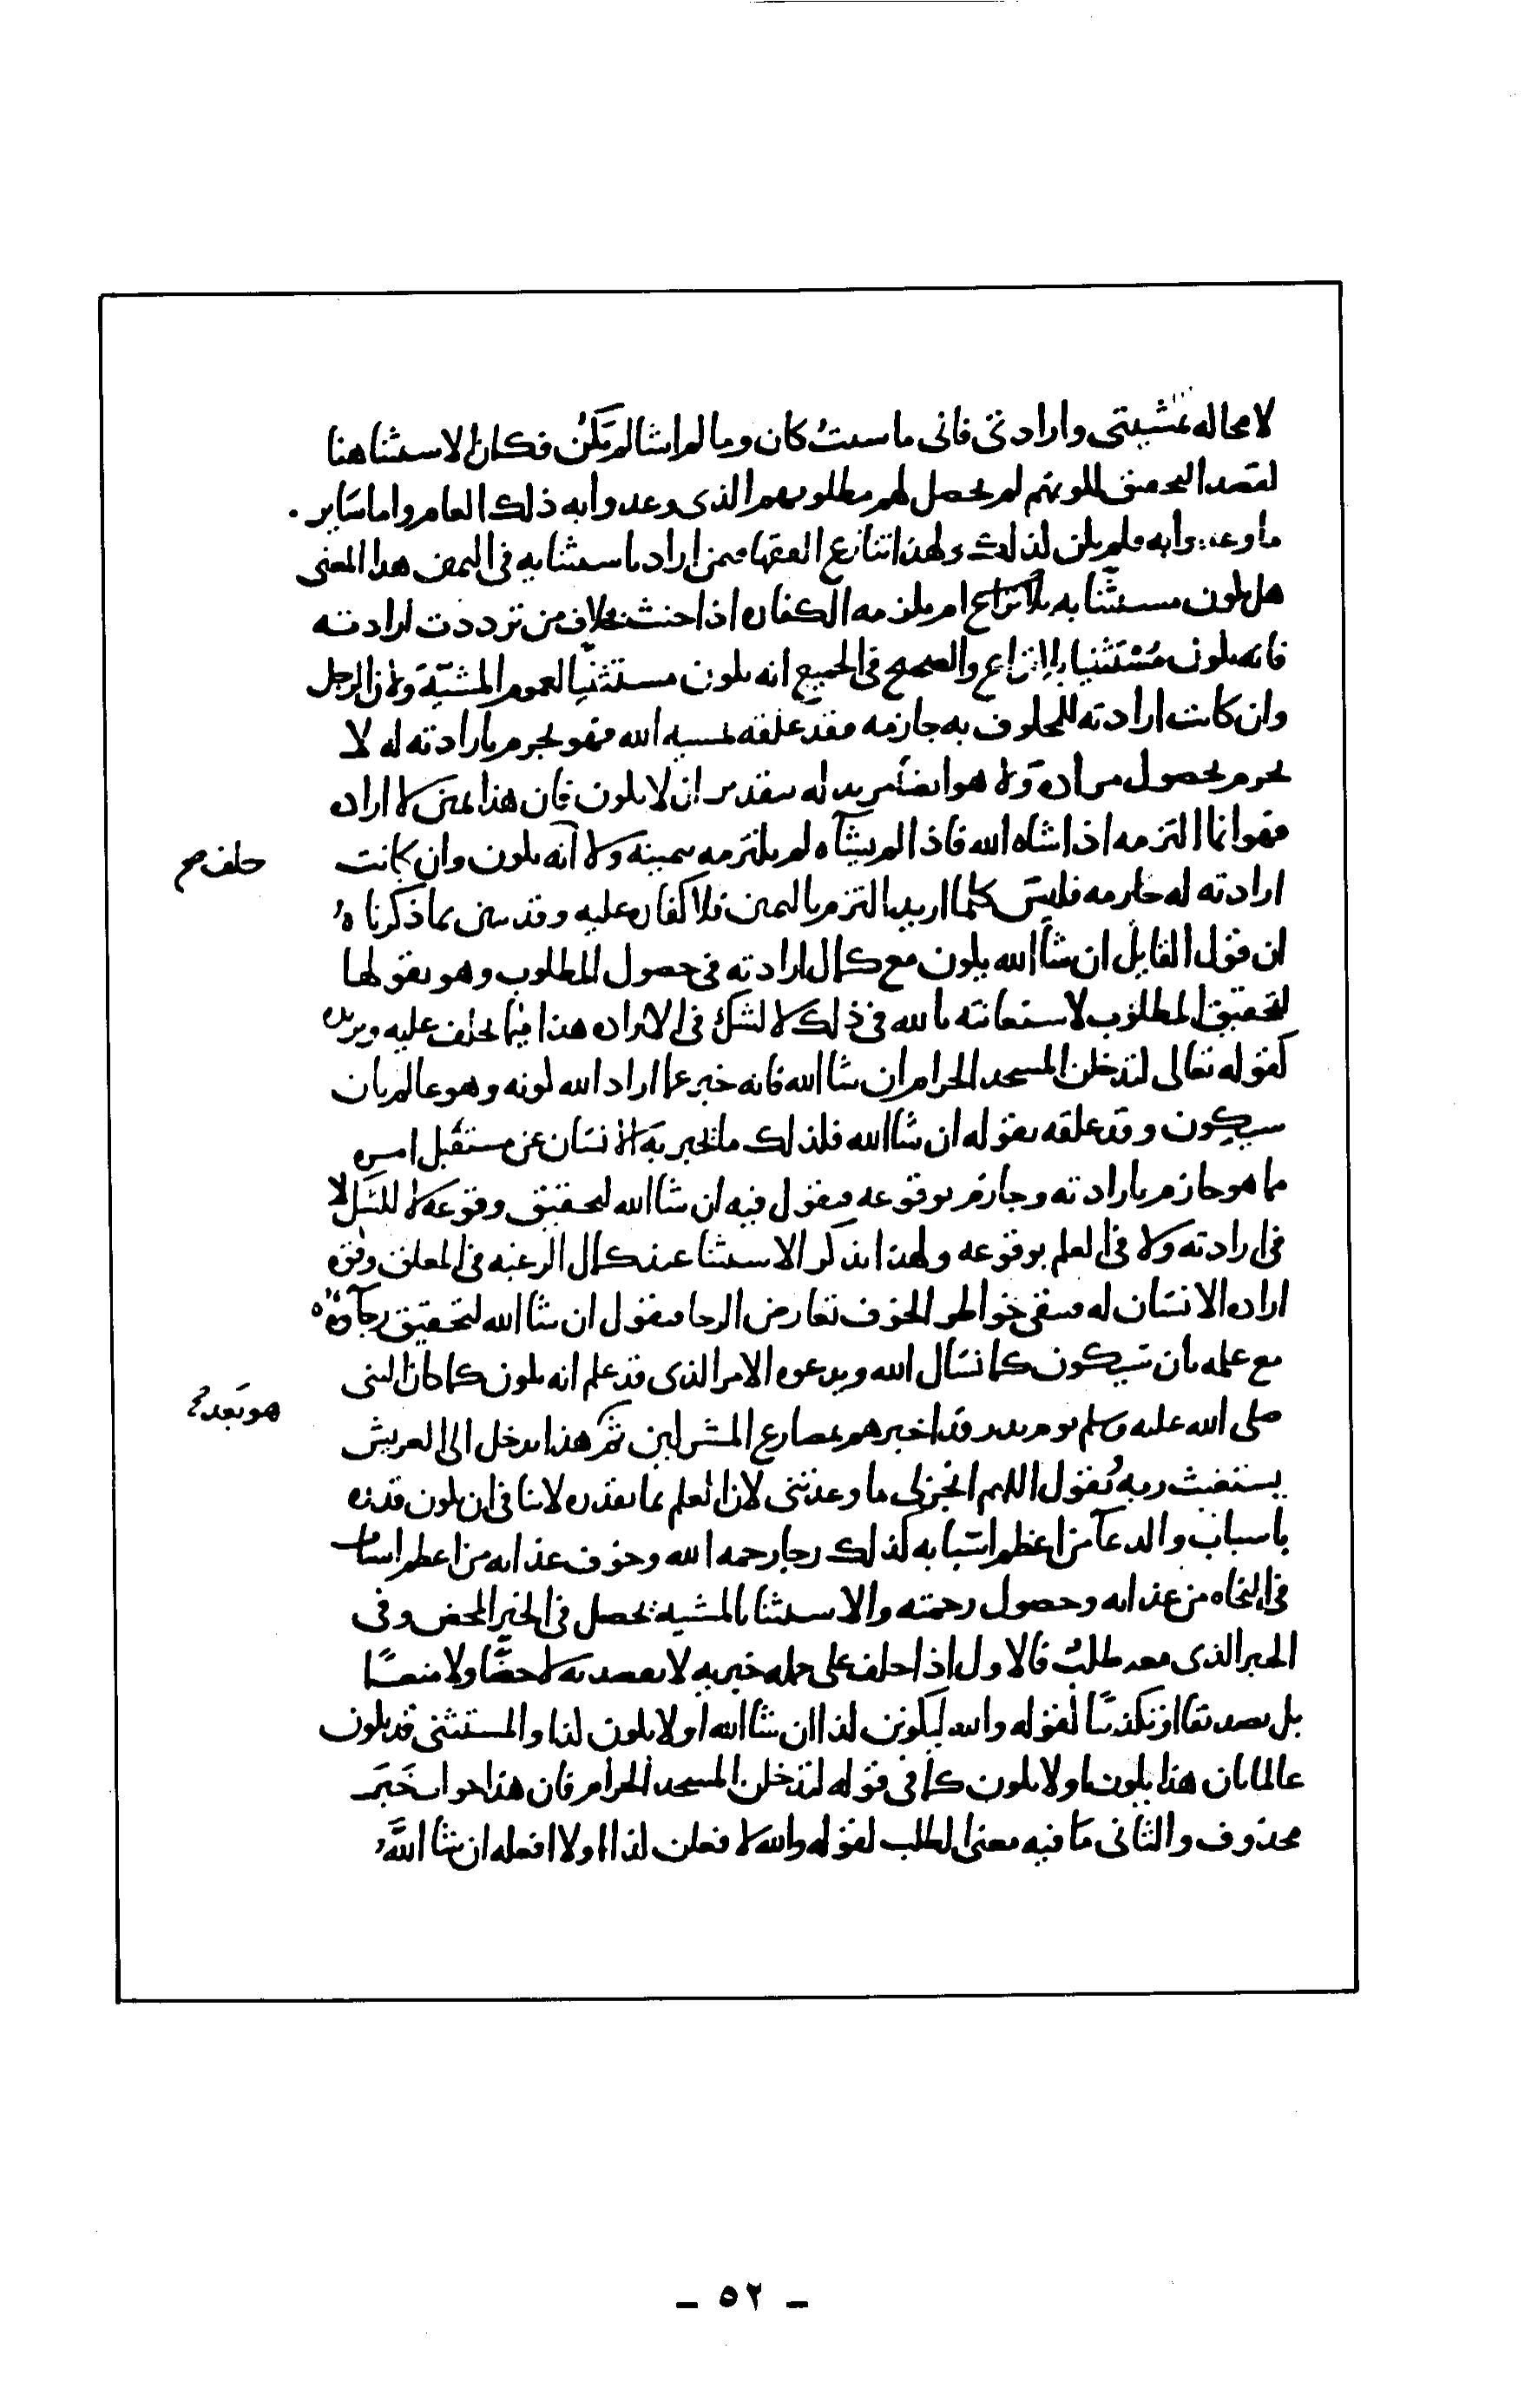 لا محاله بمشيتى وارادتى فانى ما شيت كان وما لم اشا لم يكن فكان الاستثنا هنا
لقصد التحقيق لكونهم لم يحصل لهم مطلوبهم الذى وعدوا به ذلك العام واما ساير
ما وعدوا به فلم يكن كذلك ولهذا تنازع الفقها فيمن اراد باستثنايه فى اليمين هذا المعنى
هل يكون مستثنا به بلا نزاع ام يلزمه الكفاره اذا حنث بخلاف من ترددت ارادته
فانه يكون مستثنيا بلا نزاع والصحيح فى الجميع انه يكون مستثنيا لعموم المشيّة ولان الرجل
وان كانت ارادته للمحلوف به جازمه فقد علقه بمشيه الله فهو يجزم بارادته له لا
يجزم بحصول مراده ولا هو ايضا مريد له بتقدير ان لا يكون فان هذا تمنى لا اراده
فهو انما التزمه اذا شاه الله فاذا لم يشاه لم يلتزمه بيمينه ولا انه يكون وان كانت
حلف صح
ارادته له جازمه فليس كلما اريد التزم باليمين فلا كفاره عليه وقد تبين بما ذكرناه
ان قول القايل ان شا الله يكون مع كمال ارادته فى حصول المطلوب وهو يقولها
لتحقيق المطلوب لاستعانته بالله فى ذلك لا لشك فى الاراده هذا فيما يحلف عليه ويريده
كقوله تعالى لتدخلن المسجد الحرام ان شا الله فانه خبر عما اراد الله كونه وهو عالم بان
سيكون وقد علقه بقوله ان شا الله فكذلك ما يخبر به الانسان عن مستقبل امره
مما هو جازم بارادته وجازم بوقوعه فيقول فيه ان شا الله لتحقيق وقوعه لا للشك لا
فى ارادته ولا فى العلم بوقوعه ولهذا يذكر الاستثنا عند كمال الرغبه فى المعلق وقوة
اراده الانسان له فتبقى خواطر الخوف تعارض الرجا فيقول ان شا الله لتحقيق رجايه
مع علمه بان سيكون كما نسال الله ويدعوه الامر الذى قد علم انه يكون كما كان النبى
صلى الله عليه وسلم يوم بدر قد اخبرهم بمصارع المشركين ثم هذا يدخل الى العريش
هو بعد
يستغيث ربه يقول اللهم انجز لى ما وعدتنى لان العلم بما يقدره لا ينافى ان يكون قدره
باسباب والدعا من اعظم اسبابه كذلك رجا رحمه الله وخوف عذابه من اعظم اسباب
فى النجاه من عذابه وحصول رحمته والاستثنا بالمشيه يحصل فى الخبر المحض وفى
الخبر الذى معه طلب فالاول اذا حلف على جمله خبريه لا يقصد به لا حضا ولا منعا
بل تصديقا او تكذيبا كقوله والله ليكونن كذا ان شا الله او لا يكون كذا والمستثنى قد يكون
عالما بان هذا يكون او لا يكون كما فى قوله لتدخلن المسجد الحرام فان هذا جواب خبر
محذوف والثانى ما فيه معنى الطلب كقوله والله لا فعلن كذا او لا افعله ان شا الله
- ٥٢ -